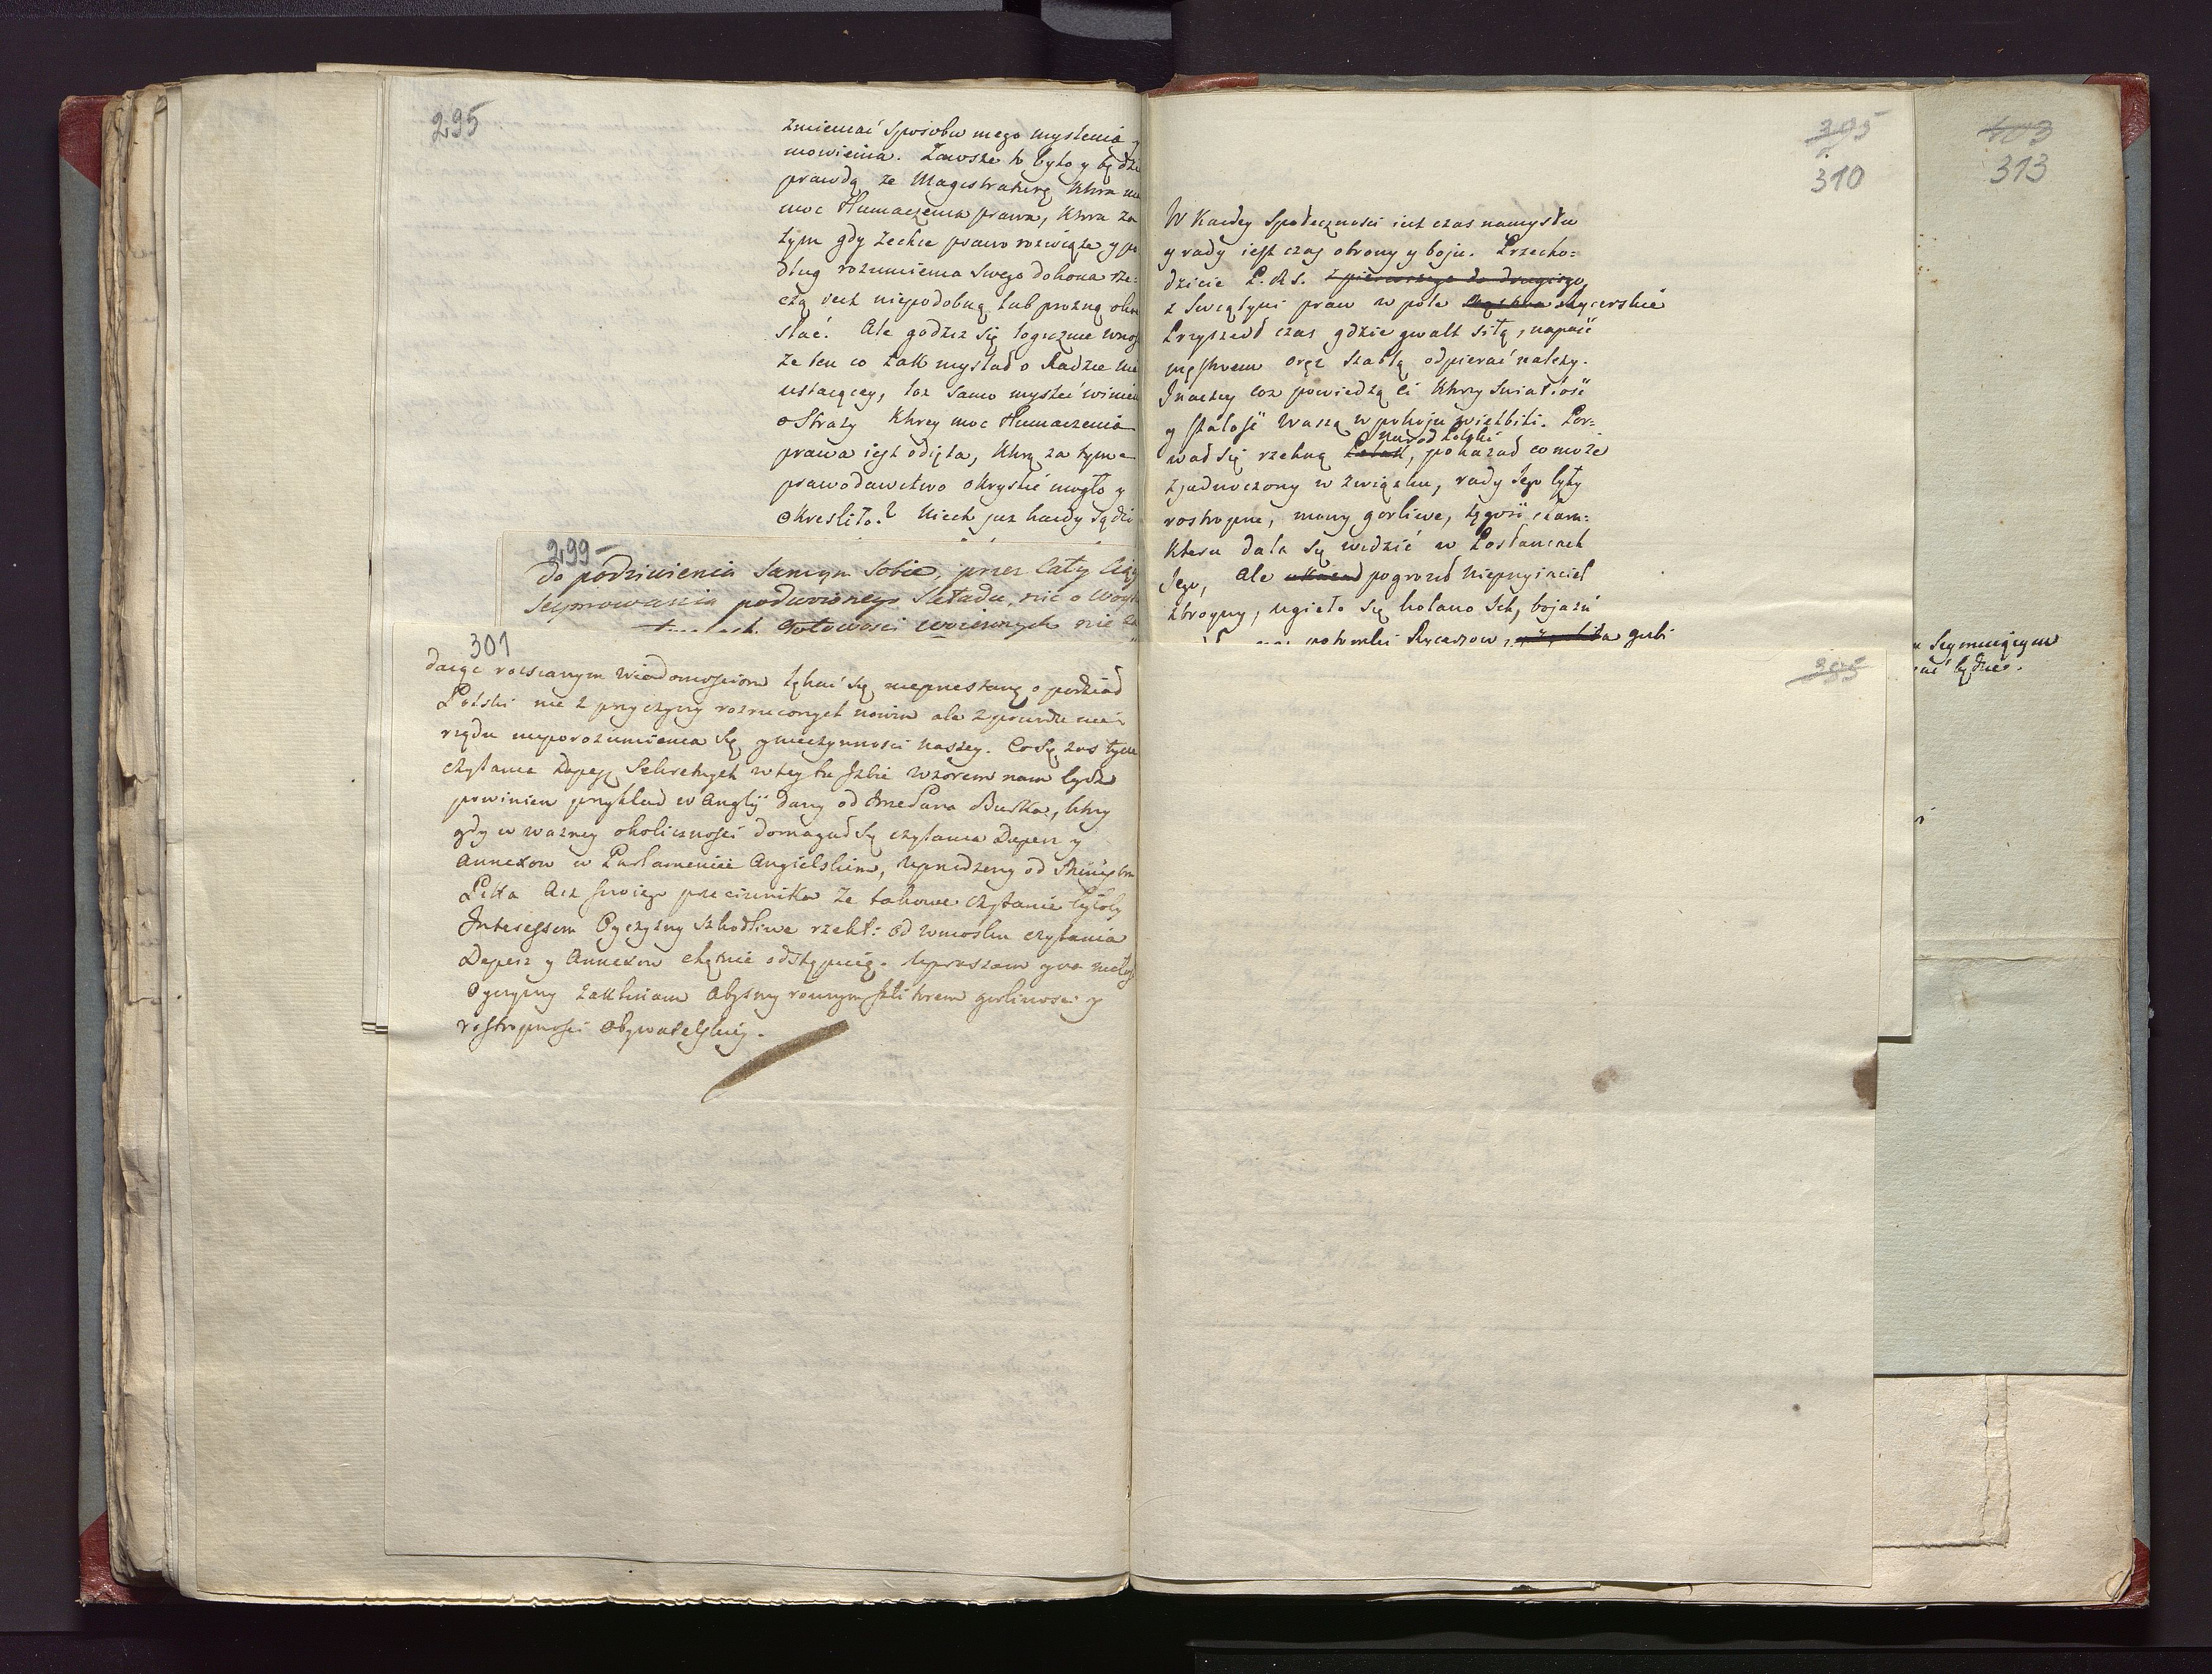 295
zmieniać sposobu mego myslenia y
mowienia. Zawsze to było y będzie
prawdą ze Magistraturę ktora ma
moc tłumaczenia prawa, ktora za
tym gdy zechce prawo rozwiąże y po
dług rozumienia swego dokona rze=
czą jest niepodobną lub prozną okre
slać. Ale godzisz się logicznie wnos
ze ten co tak myslał o Radzie nie
ustaiącey, toz samo mysleć winien
o Strazy ktorey moc tłumaczenia
prawa iest odięta, ktorą za tym
prawodawctwo okryslić mogło y
okresliło? Niech juz kazdy sądzi
299
do podziwienia samym sobie, przez cały ciąg
Seymowania podwoionego składu, nic o Woys
Gotowosci woiennych nic
301
daige rozsianym wiadomosciom lękać się nieprzestanę o podział
Polski nie z przyczyny rozrzuconych nowin ale z powodu nie
rządu nieporozumienia się y nieczynnosci naszey. Co się zas tycze
czytania depesz sekretnych w tey tu Izbie wzorem nam bydz
powinien przykład w Anglij dany od Jmć Pana Burka, ktory
gdy w wazney okolicznosci domagał się czytania Depesz y
Annexow w Parlamencie Angielskim, uprzedzony od Ministra
Pitta acz swoiego przeciwnika ze takowe czytanie byłoby
Interessom Oyczyzny szkodliwe rzekł: od wniosku czytania
Depesz y Annexow chętnie odstępuię. Upraszam y na miłość
Oyczyzny zaklinam abysmy rownym szli torem gorliwosci y
rostropnosci obywatelskiey.
305
310
W kazdey społecznosci iest czas namysłu
y rady iest czas obrony y boju. Przecho=
dzicie P. R. S. z pierwszego do drugiego,
z swiątyni praw w pole rycerskie
Przyszedł czas gdzie gwałt siłą, napaść
męstwem oręz szablą odpierać nalezy.
Inaczey coz powiedzą ci ktorzy swiatłość
y stałość waszą w pokoju wielbili. Por=
wał się rzekną narod Polski, pokazał co może
zjednoczony w związku, rady jego były
rostropne, mowy gorliwe, tęgość charа=
kteru dała się widzić w Posłancach
Jego, ale pogroził nieprzyjaciel
zbroyny, ugięło się kolano Ich, bojazń
potomki Rycerzow, gubi
295
403
313
Seymuiącym
będzie.